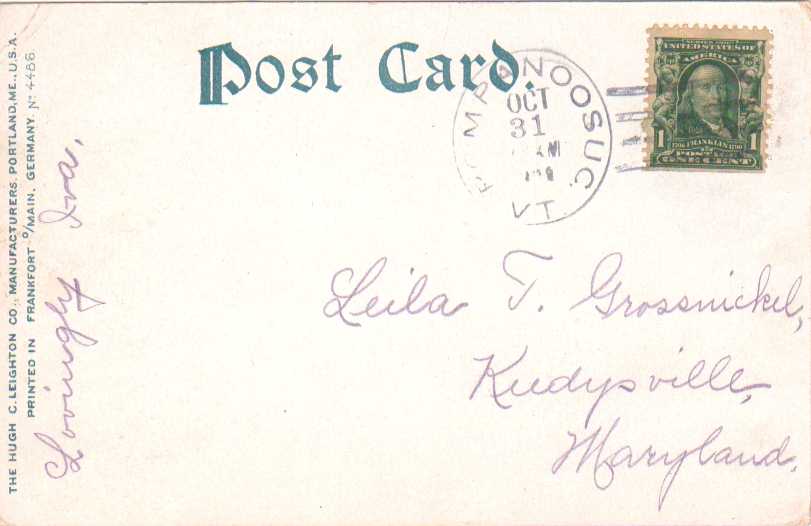 Post Card.
POMPANOOSUC
OCT
31
VT.
UNITED STATES OF
AMERICA
1 1
FRANKLIN
POSTAGE
ONE CENT
Leila T. Grossnickel,
Keedysville,
Maryland.
Lovingly Iva,
THE HUGH C. LEIGHTON CO., MANUFACTURERS PORTLAND, ME., U.S.A.
PRINTED IN FRANKFORT O/MAIN, GERMANY. No 4486